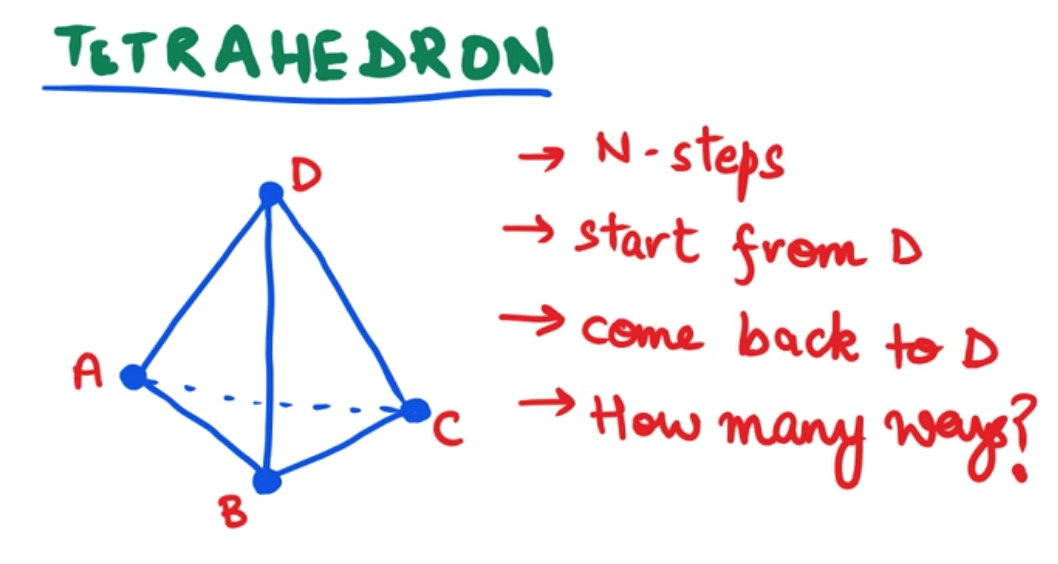 TETRAHEDRON
D
→ N-steps
→ start from D
→ come back to D
A
→ How many ways?
C
B